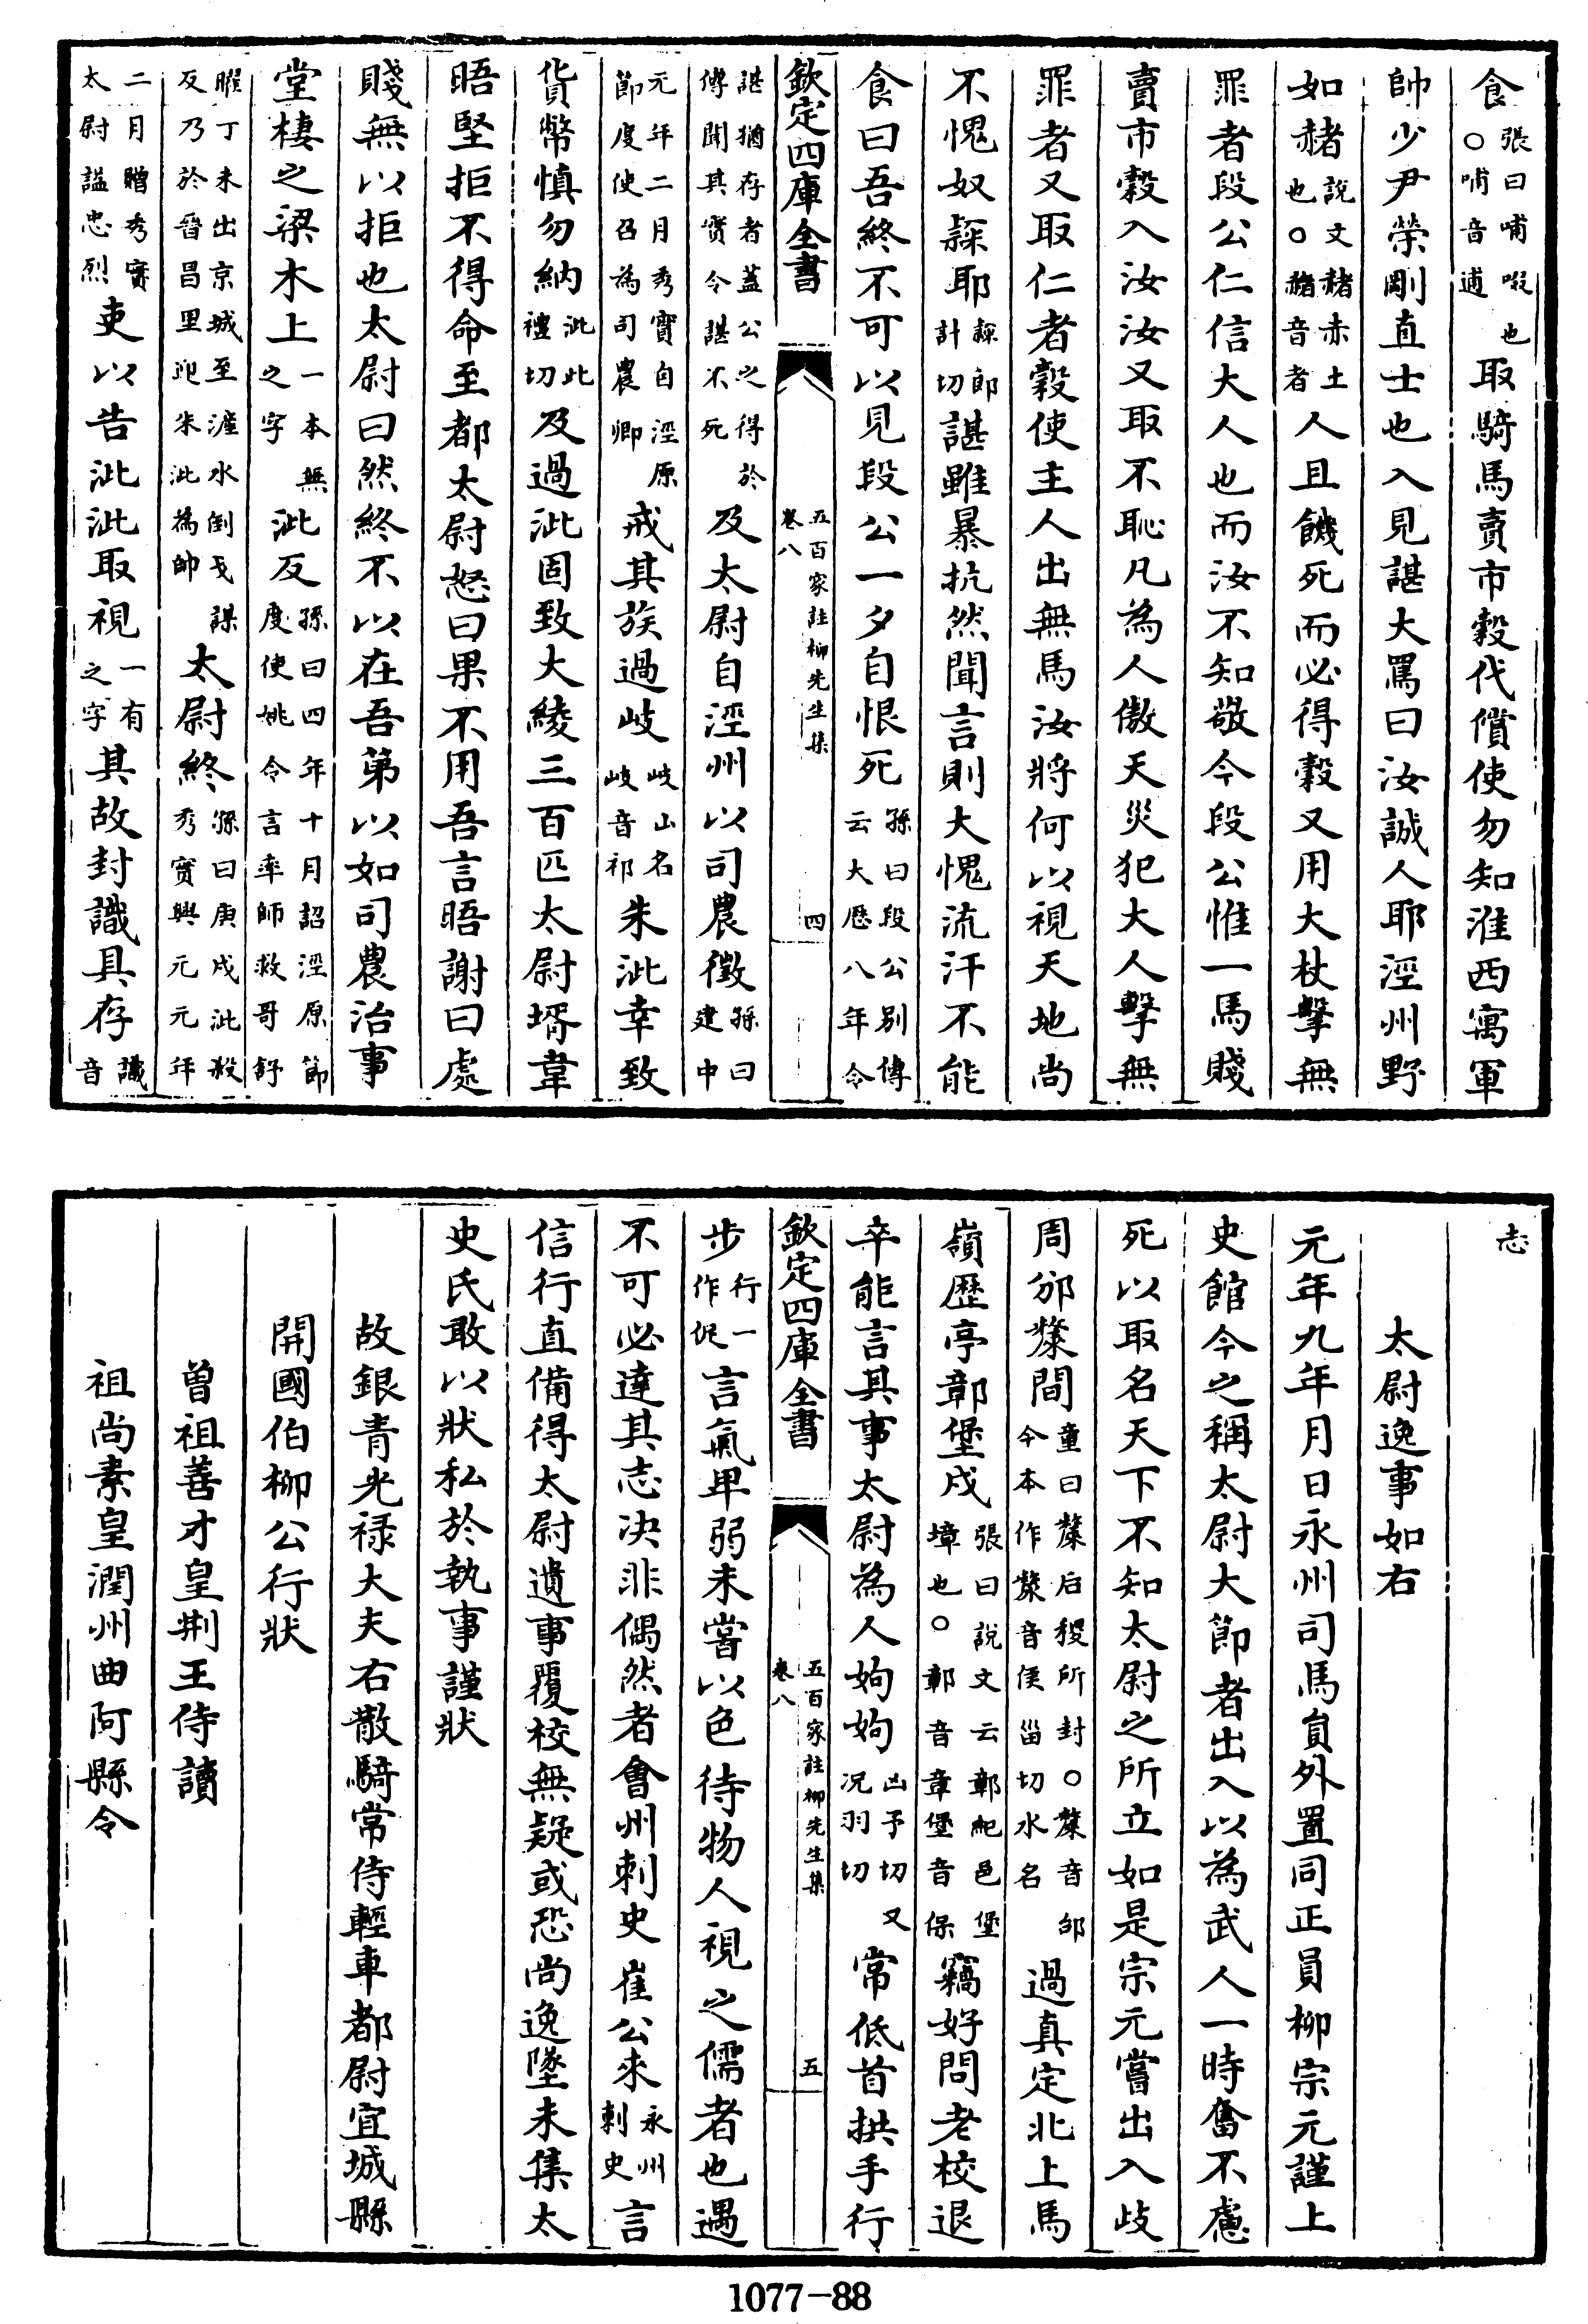 食張曰哺啜也○哺音逋取騎馬賣市穀代償使勿知淮西寓軍
帥少尹榮剛直士也入見諶大罵曰汝誠人耶涇州野
如赭說文赭赤土也○赭音者人且饑死而必得穀又用大杖擊無
罪者段公仁信大人也而汝不知敬今段公惟一馬賤
賣市穀入汝汝又取不恥凡為人傲天災犯大人擊無
罪者又取仁者穀使主人出無馬汝將何以視天地尚
不愧奴隸耶隸郎計切諶雖暴抗然聞言則大愧流汗不能
食曰吾終不可以見段公一夕自恨死孫曰段公別傳云大厯八年令
欽定四庫全書 五百家註柳先生集 卷八 四
諶猶存者蓋公之得於傳聞其實令諶不死及太尉自涇州以司農徵孫曰建中
元年二月秀實自涇原節度使召為司農卿戒其族過岐岐山名岐音祁朱泚幸致
貨幣慎勿納泚此禮切及過泚固致大綾三百匹太尉壻韋
晤堅拒不得命至都太尉怒曰果不用吾言晤謝曰處
賤無以拒也太尉曰然終不以在吾第以如司農治事
堂棲之梁木上一本無之字泚反孫曰四年十月詔涇原節度使姚令言率師救哥舒
曜丁未出京城至滻水倒戈謀反乃於晉昌里迎朱泚為帥太尉終孫曰庚戌泚殺秀實興元元年
二月贈秀實太尉謚忠烈吏以告泚泚取視一有之字其故封識具存識音
志
太尉逸事如右
元年九年月日永州司馬員外置同正員柳宗元謹上
史館今之稱太尉大節者出入以為武人一時奮不慮
死以取名天下不知太尉之所立如是宗元嘗出入岐
周邠斄間童曰斄后稷所封○斄音邰今本作漦音俟甾切水名過真定北上馬
嶺歷亭鄣堡戍張曰說文云鄣紀邑堡墇也○鄣音章堡音保竊好問老校退
卒能言其事太尉為人姁姁凶予切又况羽切常低首拱手行
欽定四庫全書 五百家註柳先生集 卷八 五
步行一作促言氣卑弱未嘗以色待物人視之儒者也遇
不可必達其志决非偶然者會州刺史崔公來永州刺史言
信行直備得太尉遺事覆校無疑或恐尚逸墜未集太
史氏敢以狀私於執事謹狀
故銀青光祿大夫右散騎常侍輕車都尉宜城縣
開國伯柳公行狀
曾祖善才皇荆王侍讀
祖尚素皇潤州曲阿縣令
1077-88